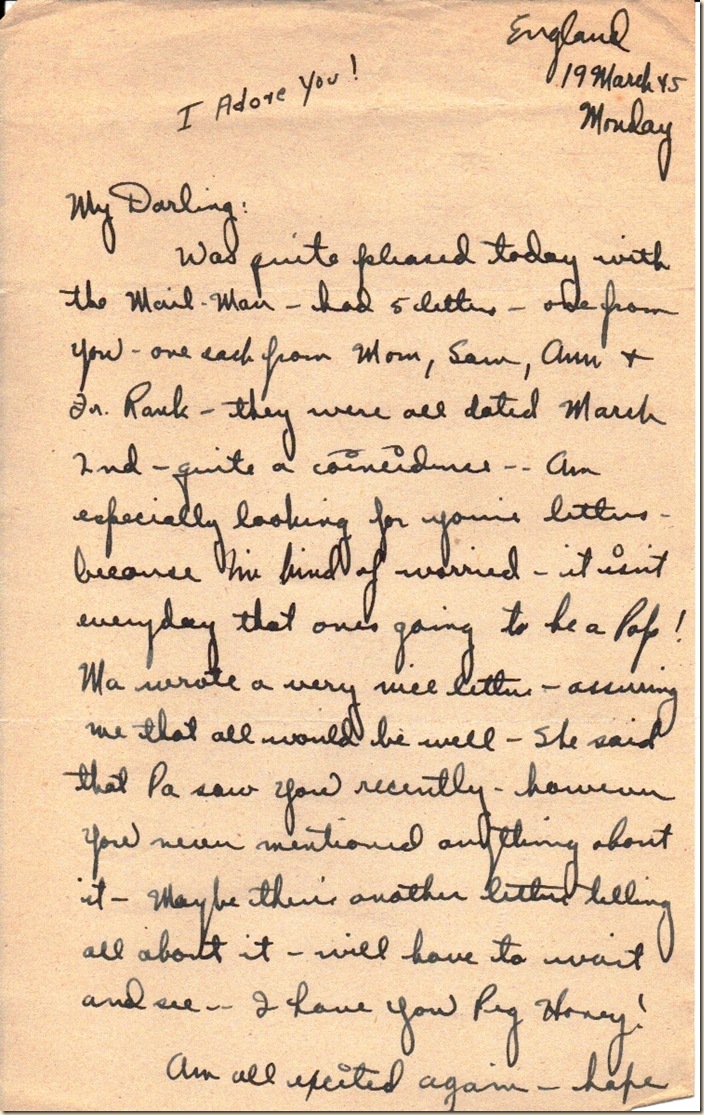 England
19 March 45
Monday
I Adore You!
My Darling:
Was quite pleased today with
the Mail-Man - had 5 letters - one from
you - one each from Mom, Sam, Ann +
Fr. Rank - they were all dated March
2nd - quite a coincidence -- Am
especially looking for your letters -
because I'm kind of worried - it isn't
everyday that ones going to be a Pop!
Ma wrote a very nice letter - assuring
me that all would be well - She said
that Pa saw you recently - however
you never mentioned anything about
it - Maybe there's another letter telling
all about it - will have to wait
and see -- I have you Peg Honey!
Am all excited again - hope